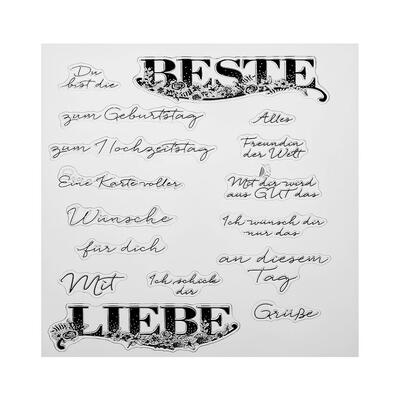 Du
bist die
BESTE
zum Geburtstag
Alles
zum Hochzeitstag
Freundin
der Welt
Eine Karte voller
Mit dir wird
aus GUT das
Wünsche
Ich wünsch dir
nur das
für dich
an diesem
Tag
Mit
Ich schick
dir
LIEBE
Grüße